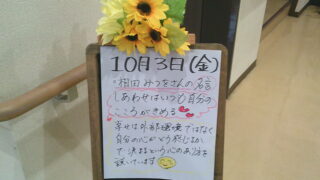 10月3日(金)
・相田みつをさんの名言
しあわせはいつも自分の
こころがきめる
幸せは外部環境ではなく
自分の心がどう感じるか
で決まるという心のあり方を
説いています